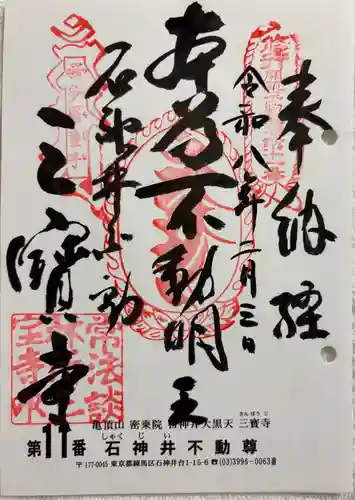 奉納経
令和八年二月三日
本尊不動明王
石神井不動
三寳寺
亀頂山 密乗院 石神井大黒天 三寳寺
さんぽうじ
第11番 石神井不動尊
しゃくじい
〒177-0045 東京都練馬区石神井台1-15-6 ☎(03)3996-0063番